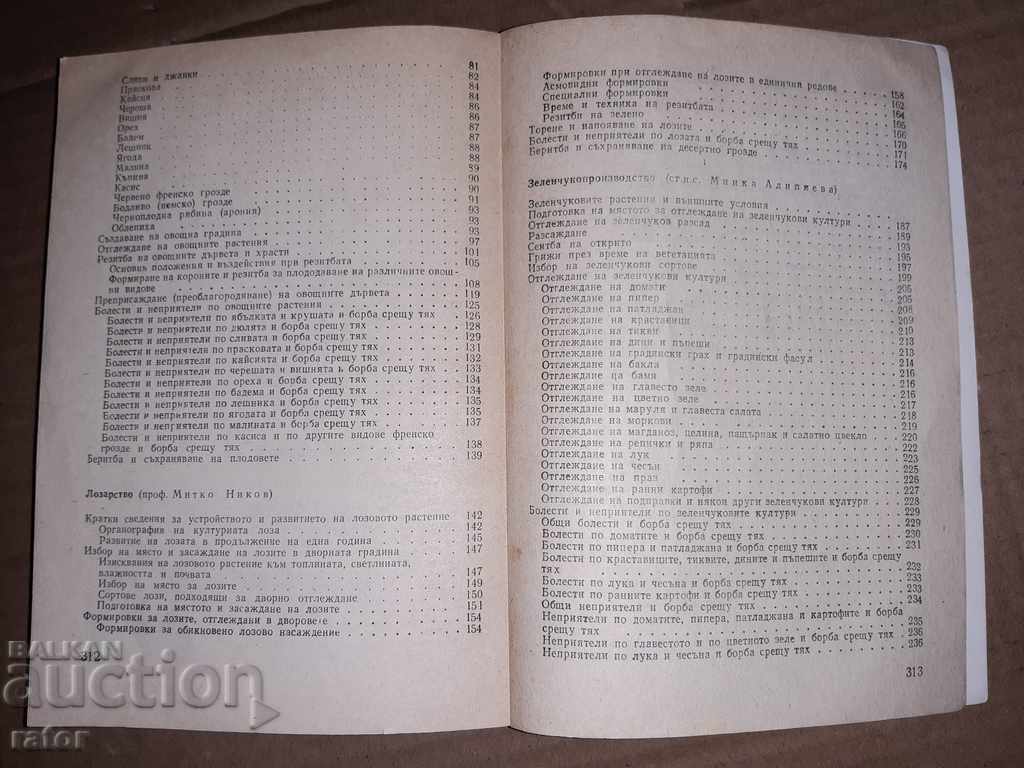 Сливи и джанки . . . 81
Праскова . . . 82
Кайсия . . . 84
Череша . . . 84
Вишня . . . 86
Орех . . . 86
Бадем . . . 87
Лешник . . . 87
Ягода . . . 88
Малина . . . 88
Къпина . . . 89
Касис . . . 90
Червено френско грозде . . . 90
Бодливо (немско) грозде . . . 91
Черноплодна рябина (арония) . . . 93
Облепиха . . . 93
Създаване на овощна градина . . . 93
Отглеждане на овощните растения . . . 97
Резитба на овощните дървета и храсти . . . 101
Основни положения и въздействия при резитбата . . . 105
Формиране на короните и резитба за плододаване на различните овощ-
ни видове . . . 108
Преприсаждане (преоблагородяване) на овощните дървета . . . 119
Болести и неприятели по овощните растения . . . 125
Болести и неприятели по ябълката и крушата и борба срещу тях . . . 126
Болести и неприятели по дюлята и борба срещу тях . . . 128
Болести и неприятели по сливата и борба срещу тях . . . 129
Болести и неприятели по прасковата и борба срещу тях . . . 131
Болести и неприятели по кайсията и борба срещу тях . . . 132
Болести и неприятели по черешата и вишнята и борба срещу тях . . . 133
Болести и неприятели по ореха и борба срещу тях . . . 134
Болести и неприятели по бадема и борба срещу тях . . . 134
Болести и неприятели по лешника и борба срещу тях . . . 135
Болести и неприятели по ягодата и борба срещу тях . . . 135
Болести и неприятели по малината и борба срещу тях . . . 137
Болести и неприятели по касиса и по другите видове френско
грозде и борба срещу тях . . . 138
Беритба и съхраняване на плодовете . . . 139
Лозарство (проф. Митко Ников)
Кратки сведения за устройството и развитието на лозовото растение 142
Органография на културната лоза . . . 142
Развитие на лозата в продължение на една година . . . 145
Избор на място и засаждане на лозите в дворната градина . . . 147
Изисквания на лозовото растение към топлината, светлината,
влажността и почвата . . . 147
Избор на място за лозите . . . 149
Сортове лози, подходящи за дворно отглеждане . . . 150
Подготовка на мястото и засаждане на лозите . . . 151
Формировки за лозите, отглеждани в дворовете . . . 154
Формировки за обикновено лозово насаждение . . . 154
312
Формировки при отглеждане на лозите в единични редове . . . 158
Асмовидни формировки . . . 162
Специални формировки . . . 164
Време и техника на резитбата . . . 165
Резитби на зелено . . . 166
Торене и напояване на лозите . . . 170
Болести и неприятели по лозата и борба срещу тях . . . 171
Беритба и съхраняване на десертно грозде . . . 174
Зеленчукопроизводство (ст.н.с. Минка Адипиева)
Зеленчуковите растения и външните условия
Подготовка на мястото за отглеждане на зеленчукови култури . . . 187
Отглеждане на зеленчуков разсад . . . 189
Разсаждане . . . 193
Сеитба на открито . . . 195
Грижи през време на вегетацията . . . 197
Избор на зеленчукови сортове . . . 199
Отглеждане на зеленчукови култури . . . 205
Отглеждане на домати . . . 205
Отглеждане на пипер . . . 208
Отглеждане на патладжан . . . 209
Отглеждане на краставици . . . 210
Отглеждане на тикви . . . 211
Отглеждане на дини и пъпеши . . . 213
Отглеждане на градински грах и градински фасул . . . 214
Отглеждане на бакла . . . 216
Отглеждане на бамя . . . 216
Отглеждане на главесто зеле . . . 216
Отглеждане на цветно зеле . . . 217
Отглеждане на маруля и главеста салата . . . 218
Отглеждане на моркови . . . 219
Отглеждане на магданоз, целина, пащърнак и салатно цвекло . . . 220
Отглеждане на репички и ряпа . . . 222
Отглеждане на лук . . . 223
Отглеждане на чесън . . . 225
Отглеждане на праз . . . 226
Отглеждане на ранни картофи . . . 227
Отглеждане на подправки и някои други зеленчукови култури . . . 228
Болести и неприятели по зеленчуковите култури . . . 229
Общи болести и борба срещу тях . . . 229
Болести по доматите и борба срещу тях . . . 230
Болести по пипера и патладжана и борба срещу тях . . . 231
Болести по краставиците, тиквите, дините и пъпешите и борба срещу
тях . . . 232
Болести по лука и чесъна и борба срещу тях . . . 233
Болести по ранните картофи и борба срещу тях . . . 233
Общи неприятели и борба срещу тях . . . 234
Неприятели по доматите, пипера, патладжана и картофите и борба
срещу тях . . . 235
Неприятели по главестото и по цветното зеле и борба срещу тях . . . 236
Неприятели по лука и чесъна и борба срещу тях . . . 236
313
BALKAN
auction
rator